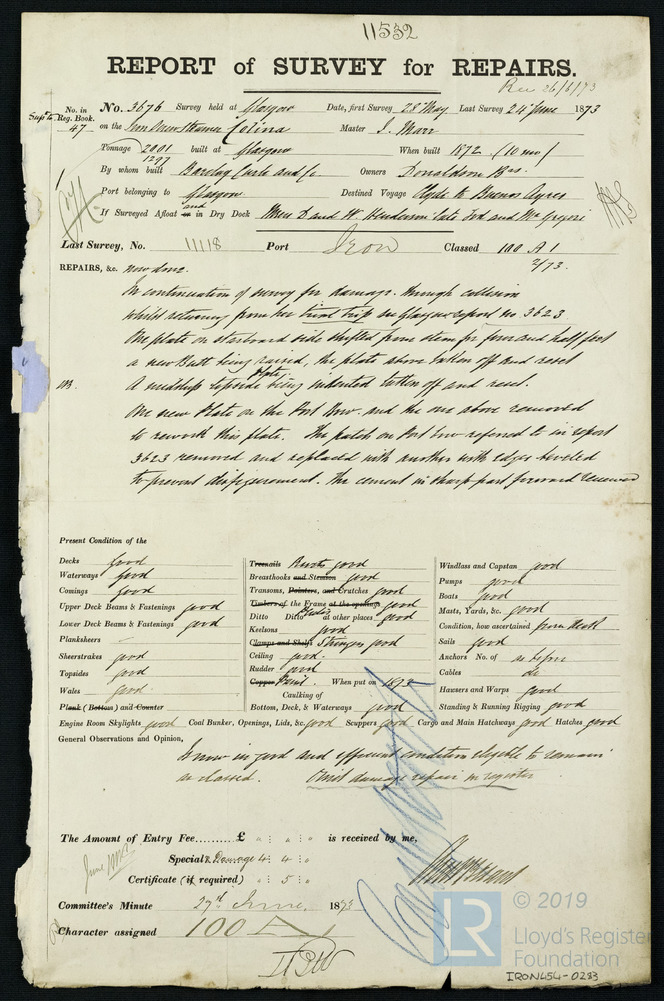 11532
REPORT of SURVEY for REPAIRS.
Rec 26/6/73
No. in Reg. Book.
Supt to 47
No. 3676 Survey held at Glasgow Date, first Survey 28 May Last Survey 24 June 1873
on the Iron Screw Steamer Colina Master J. Marr
Tonnage 2001 1297 built at Glasgow When built 1872 (10 mo)
By whom built Barclay Curle and Co Owners Donaldson Bros.
Port belonging to Glasgow Destined Voyage Clyde to Buenos Ayres
If Surveyed Afloat or and in Dry Dock Messrs D and W. Henderson late Tod and McGregor
Last Survey, No. 11118 Port Iron Classed 100 A 1
2/73.
REPAIRS, &c. now done.
In continuation of survey for damage through collision
whilst returning from her trial trip see Glasgow report no. 3623
One plate on starboard side shifted from stem for four and half feet
a new Butt being raised, the plate above taken off and reset
A midship topside plate being indented taken off and reset.
One new Plate on the Port Bow and the one above removed
to rework this plate. The patch on Port bow referred to in report
3623 removed and replaced with another with edges beveled
to prevent disfigurement. The cement in sharp part forward renewed
Present Condition of the
Decks good
Waterways good
Comings good
Upper Deck Beams & Fastenings good
Lower Deck Beams & Fastenings good
Planksheers
Sheerstrakes good
Topsides good
Wales good
Plank (Bottom) and Counter
Treenails Rivets good
Breasthooks and Stemson good
Transoms, Pointers, and Crutches good
Timbers of the Frame at the openings good
Ditto Ditto at other places good
Keelsons good
Clamps and Shelfs Stringers good
Ceiling good
Rudder good
Copper Paint. When put on 1873
Caulking of
Bottom, Deck, & Waterways good
Windlass and Capstan good
Pumps good
Boats good
Masts, Yards, &c. good
Condition, how ascertained from deck
Sails good
Anchors No. of as before
Cables do
Hawsers and Warps good
Standing & Running Rigging good
Engine Room Skylights good Coal Bunker, Openings, Lids, &c. good Scuppers good Cargo and Main Hatchways good Hatches good
General Observations and Opinion,
Is now in good and efficient condition eligible to remain
as classed. Omit damage repair in register
The Amount of Entry Fee......... £ is received by me,
Special & Damage 4 : 4 :
Certificate (if required) : 5 :
Committee's Minute 27th June, 1873
Character assigned 100 A
© 2019
LR
Lloyd's Register
Foundation
IRON454-0233